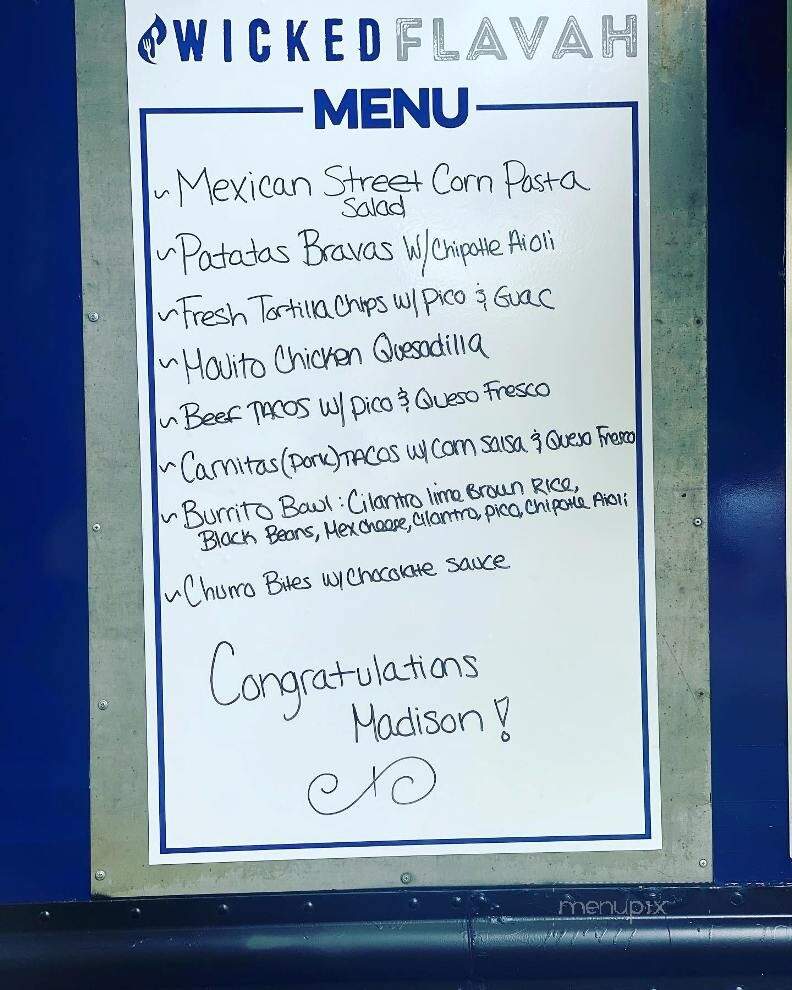 WICKED FLAVAH
MENU
~ Mexican Street Corn Pasta
Salad
~ Patatas Bravas W/Chipotle Aioli
~ Fresh Tortilla Chips w/ Pico & Guac
~ Mojito Chicken Quesadilla
~ Beef TACOS w/ Pico & Queso Fresco
~ Carnitas (Pork) TACOS w/ Corn Salsa & Queso Fresco
~ Burrito Bowl: Cilantro lime Brown Rice,
Black Beans, Mex cheese, Cilantro, pico, Chipotle Aioli
~ Churro Bites w/ Chocolate sauce
Congratulations
Madison!
menupix